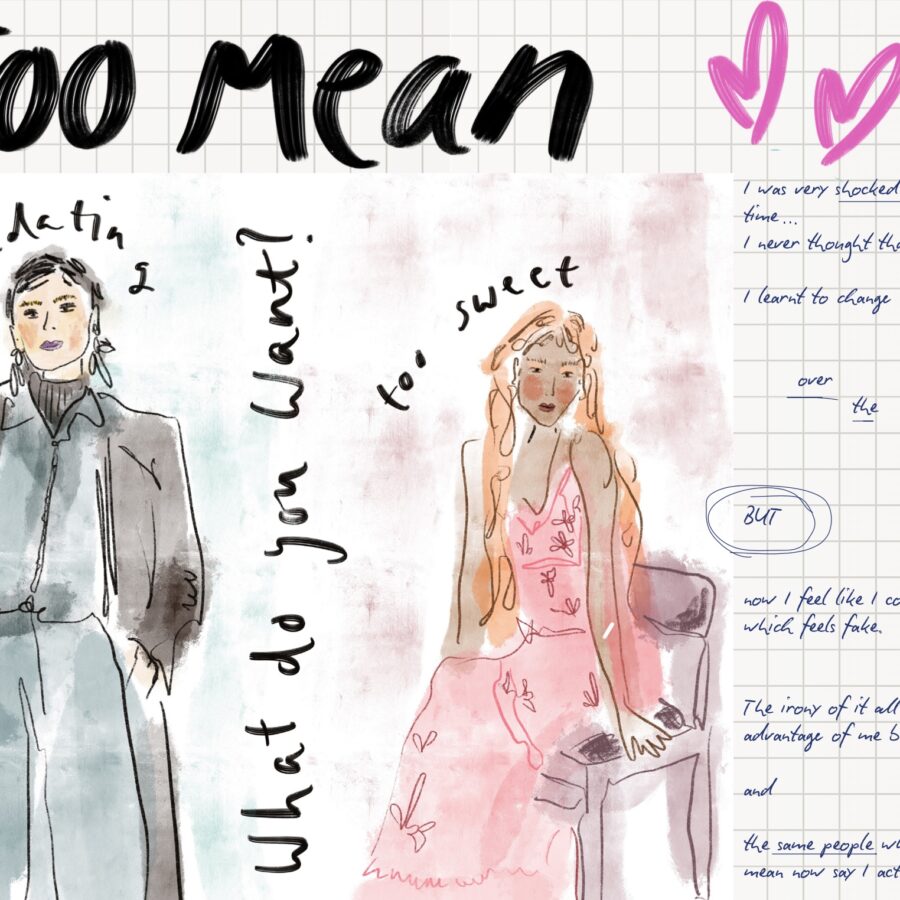 Too Mean
What do you Want?
too sweet
I was very shocked
time...
I never thought
I learnt to change
over
the
BUT
now I feel like I
which feels fake.
The irony of it all
advantage of me
and
the same people
mean now say I act